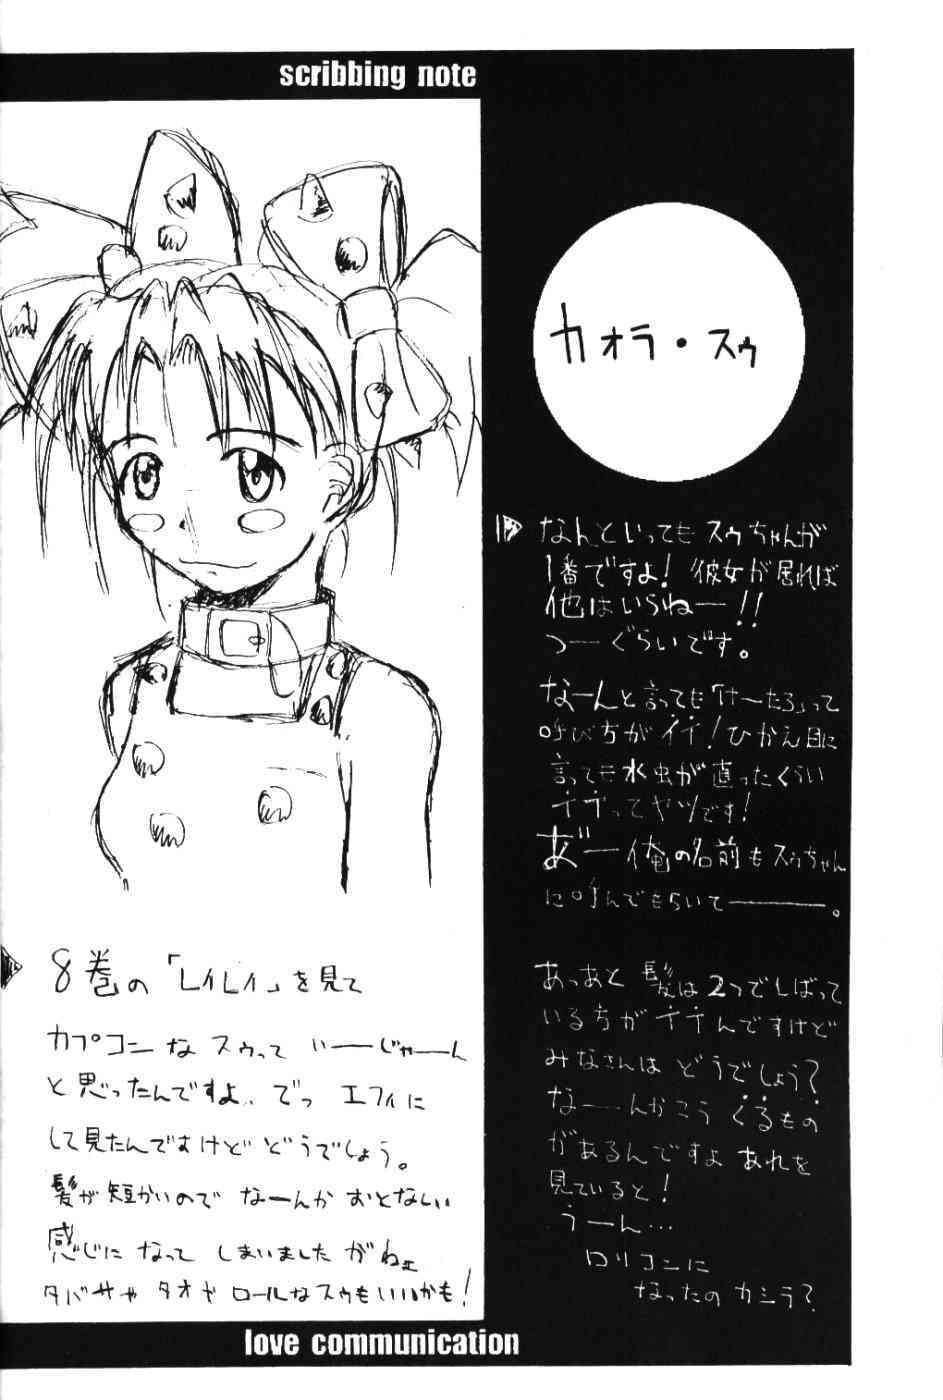 scribbing note
カオラ・スゥ
なんといってもスゥちゃんが
1番ですよ! 彼女が居れば
他はいらねー!!
つーぐらいです。
なーんと言っても「けーたろ」って
呼び方がイイ!ひかえ目に
言っても水虫が直ったくらい
イイってヤツです!
あ゛ー俺の名前もスゥちゃん
に呼んでもらいてー。
あっあと髪は2つでしばって
いる方がイイんですけど
みなさんはどうでしょう?
なーんかこうくるもの
があるんですよあれを
見ていると!
うーん…
ロリコンに
なったのカシラ?
8巻の「レイレイ」を見て
カプコンなスゥって いーじゃーん
と思ったんですよ。でっ エフィに
して見たんですけどどうでしょう。
髪が短かいので なーんか おとなしい
感じに なって しまいました がねェ
タバサや タオや ロールなスゥもいいかも!
love communication